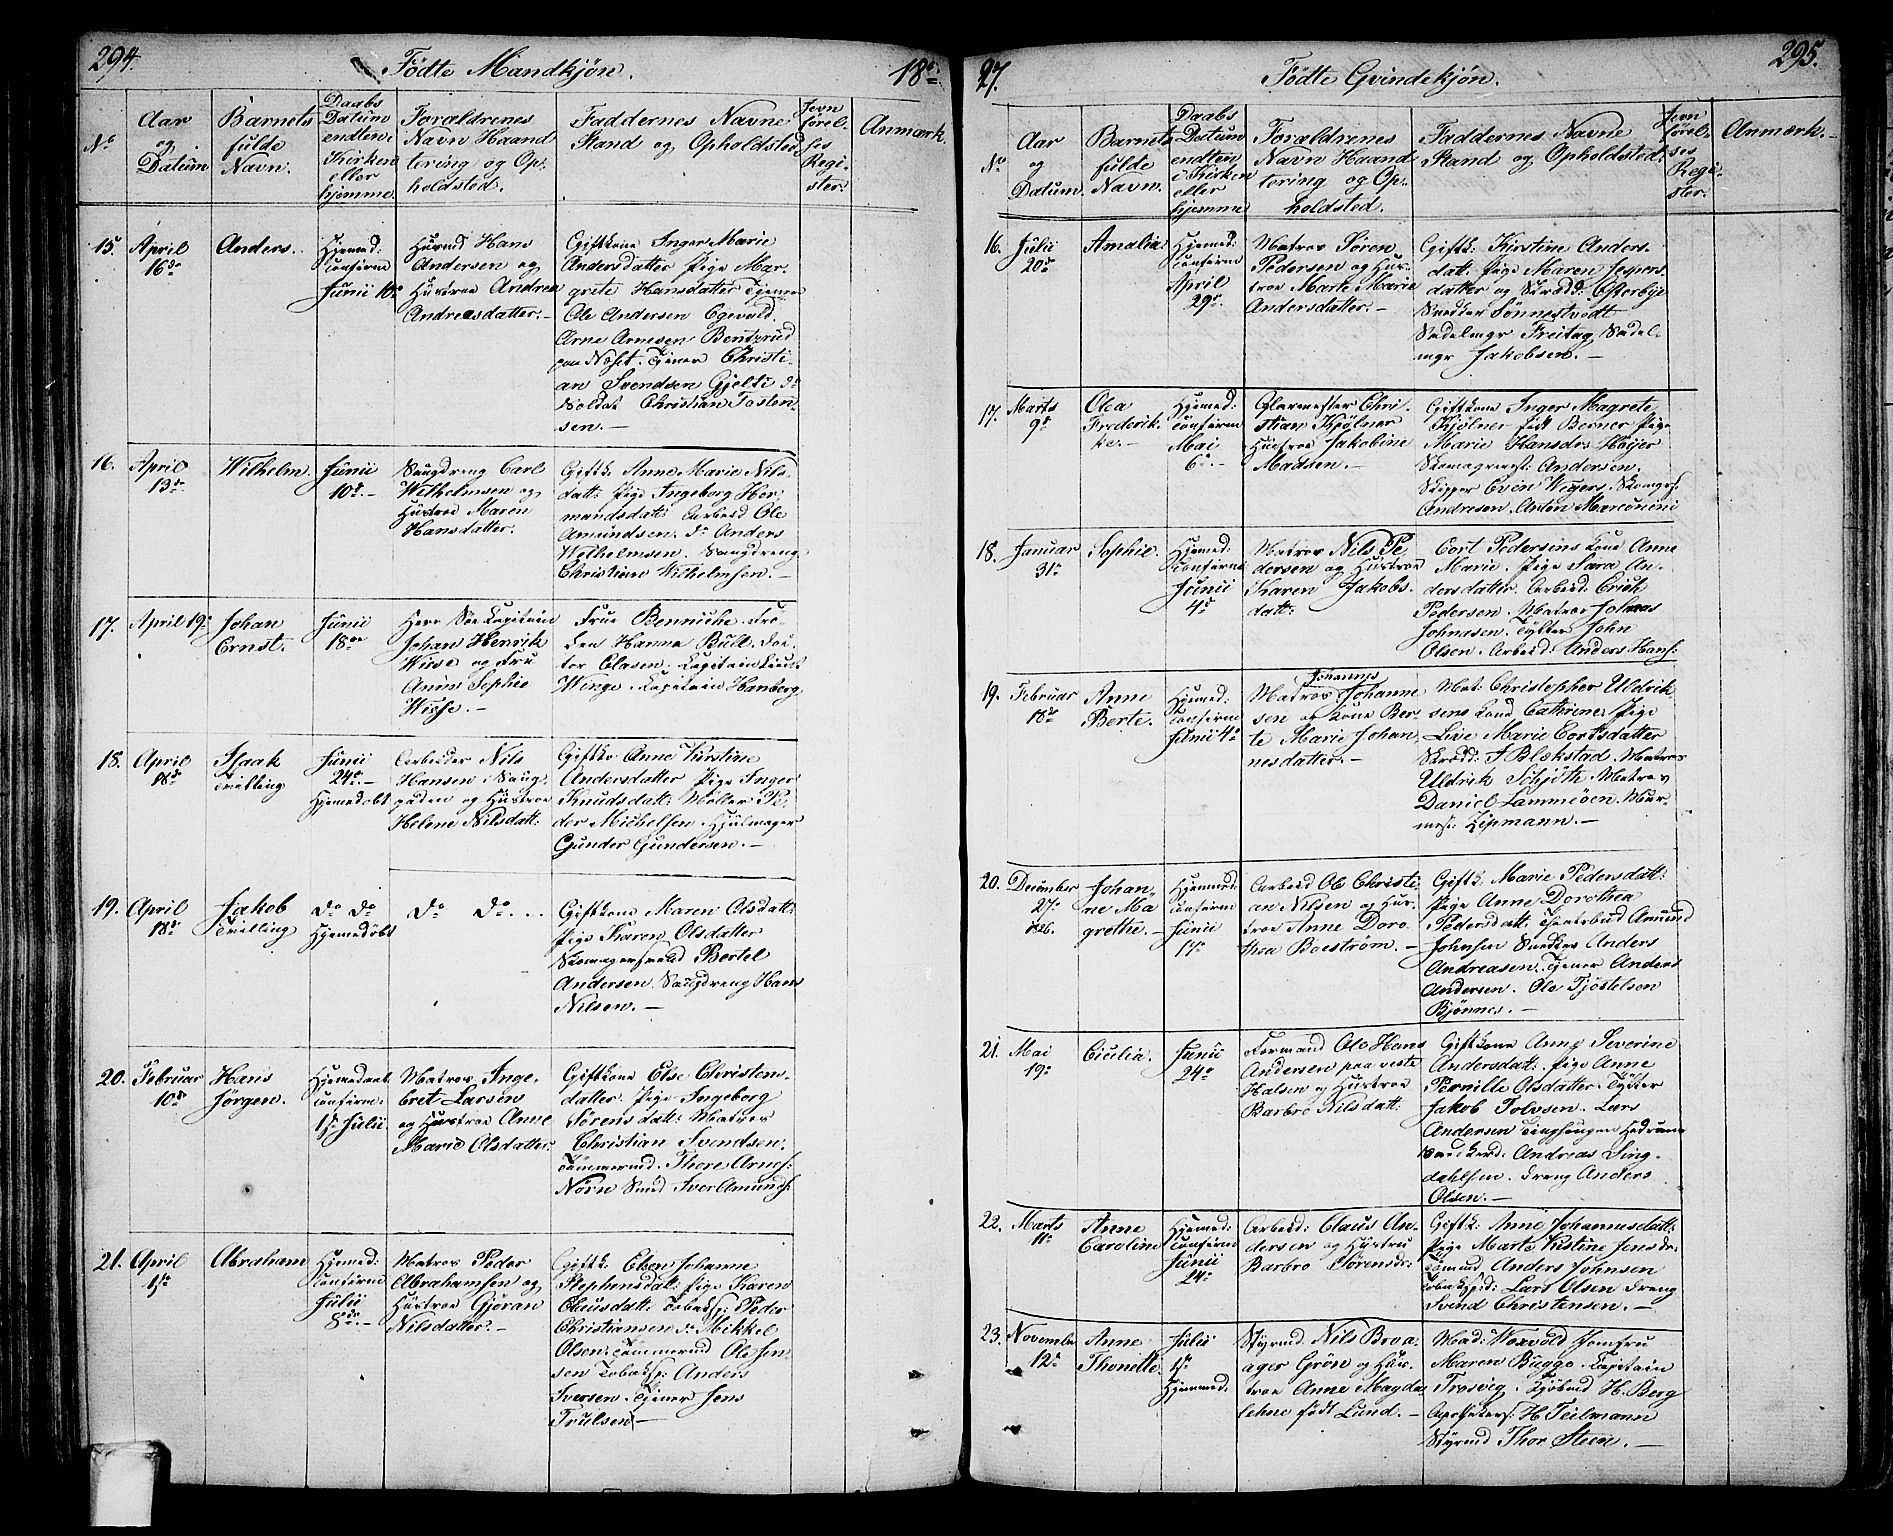 294. Födte Mandkjön. 18
No
Aar
og
Datum
Barnets
fulde
Navn.
Daabs
Datum
endten i
Kirken
eller
hjemme
Forældrenes
Navn Haand
tering og Op-
holdsted.
Faddernes Navne
Stand og Opholdsted
Jevn
förel-
ses
Regi-
ster.
Anmærk.
15. April
16de
Anders.
Hjemmed:
Confirm
Junii 10de
Hans
Andersen og
Hustroe Andrea
Andreasdatter.-
Giftkone Inger Marie
Andersdatter Pige Mar-
grete Hansdatter Tjener
Ole Andersen Egevold.
Arne Arnesen Bentzrud
paa Næset. Tjener Christi-
an Svendsen Gjelti do
Soldat Christian Tosten-
sen.-
16. April
13de
Wilhelm.
Junii
10de.-
Saugdreng Carl
Wilhelmsen og
Hustroe Maren
Hansdatter.
Giftk. Anne Marie Nils
datt: Pige Ingeborg Her-
mandsdatt: Arbeid Ole
Amundsen. do Anders
Wilhelmsen. Saugdreng
Christian Wilhelmsen.-
17. April 19de
Johan
Ernst.
Junii
18de
Herr Söe Kapitain
Johan Henrik
Wiese og Fru
Sophie
Wiese.-
Frue Benniche. Frö-
ken Hanna Bull. Doc-
tor Olesen. Kapitain Lieut
Winge. Kapitain Hanberg
18. April
18de
Isaak
Tvilling
Junii
24de.-
Hjemmedöbt
Arbeider Nils
Hansen Saug-
paden og Hustroe
Helene Nilsdatt:
Giftko Anne Kirstine
Andersdatter Pige Inger
Knudsdatt: Möller Pe-
der Michelsen. Hjulmager
Gunder Gundersen.-
19. April
18de
Jakob
Tvilling
Do Do
Hjemmedöbt
Do Do...
Giftkone Maren Olsdatt:
Pige Karen Olsdatter
Skomagersvend Bertel
Andersen Saugdreng Hans
Nilsen.-
20. Februar
10de
Hans
Jörgen.
Confirm:
1ste Julii.
Matros Inge-
bret Larsen
og Hustroe Anne
Marie Olsdatter.
Giftkone Else Christens-
datter. Pige Ingeborg
Sörensdatt: Matros
Christian Svendsen.
Tömmermd. Thore Arnes:
Nörn Smed Iver Amunds:
21. April
1ste
Abraham
Hjemmed:
Confirm
Julii
8de.-
Matros Peder
Abrahamsen og
Hustroe Gjöran
Nilsdatter.-
Giftk: Elen Johanne
Stephensdatt: Pige Karen
Clausdatt: Tobaksp: Peder
Christiansen do Mikkel
Olsen: Tömmermd Ole Jen-
sen Tobaksp: Anders
Iversen. Tjener Jens
Trulsen-
27. Födte Qvindekjön. 295.
No
Aar
og
Datum.
Barnets
fulde
Navn.
Daabs
Datum
endten
i Kirken
eller
hjemme
Forældrenes
Navn Haand
tering og Op-
holdsted.
Faddernes Navne
Stand og Opholdsted.
Jevn
förel-
ses
Regi-
ster.
Anmærk.-
16. Julii
20de
Amalia.
Hjemmed:
Confirm
April
29de
Matros Sören
Pedersen og Hus-
troe Marte Marie
Andersdatter.-
Giftk: Kirstine Anders-
datt: Pige Maren Jespers-
datter og Skrædd: Österbye
Snedker Sönnestvedt
Sadelmgr Freitag Sadel-
mgr Jakobsen.-
17. Marts
9de
Olea
Frederik-
ke.-
Hjemmed:
Confirm
Mai
6te.-
Glarmester Chri-
stian Kjölner
Hustroe Jakobine
Madsen.-
Giftkone Inger Magrete
Kjölner födt Berner Pige
Marie Hansdr Höyer
Skomagermest: Andersen.
Skipper Even Wegers. Skomgrs:
Andresen. Anton Marconini
18. Januar
31te
Sophie.
Hjemmed:
Confirm
Junii
4de
Matros Nils Pe-
dersen og Hustroe
Karen Jakobs-
datt:
Cort Pedersens Kone Anne
Marie. Pige Sara An-
dersdatter Arbeid: Erich
Pedersen. Matros Johnas
Johnasen. Tylter John
Olsen. Arbeid: Anders Hans:
19. Februar
18de
Anne
Berte.
Hjemmed:
Confirm
Junii 4de
Johannes
Matros Johanne
sen og Kone Ber-
te Marie Johan
nesdatter.-
Mat: Christopher Uldrik-
sens Kone Cathrine. Pige
Live Marie Cortsdatter
Skrædd: J Blekstad. Matros
Uldrik Schjöth. Matros
Daniel Lammöen. Mur-
mest: Lipmann.-
20. December
27de
1826.
Johan-
ne Ma
grethe.-
Hjemmed:
Confirm
Junii
17de
Arbeid Ole Christi-
an Nilsen og Hus-
troe Anne Doro
thea Boeström.-
Giftk: Marie Pedersdatt:
Pige Anne Dorothea
Pedersdatt. Amund
Johnsen Snedker Anders
Andreasen. Tjener Anders
Andersen. Ole Tjöstelsen
Björnnes.-
21. Mai
19de
Cicilia.
Junii
24de
Formand Ole Hans
Andersen paa veste
Halsen og Hustroe
Barbro Nilsdatt:
Giftkone Anne Severine
Andersdatt. Pige Anne
Pernille Olsdatter. Tylter
Jakob Tolvsen. Lars
Andersen
Andreas Ling-
dahlsen. dreng Anders
Olsen.-
22. Marts
11te
Anne
Caroline
Hjemmed:
Confirm
Junii
24de
Arbeid: Claus An-
dersen og Hustru
Barbro Sörensdr:
Giftk: Anne Johannesdatt:
Pige Marte Kistine Jensdr:
Tömmd Anders Johnsen
Tobakspd: Lars Olsen dreng
Svend Christensen.-
23. November
12te
Anne
Thonette.
Julii
1ste
Hjemmed.
Styrmd Nils Broa-
ager Grön og Hus-
troe Anne Magda-
lehne födt Lund.-
Mad: Woxvold Jomfru
Maren Bugge. Capitain
Trosvig. Kjöbmd H. Berg
Apotheker: H. Teilmann
Styrmd Thor Steen.-